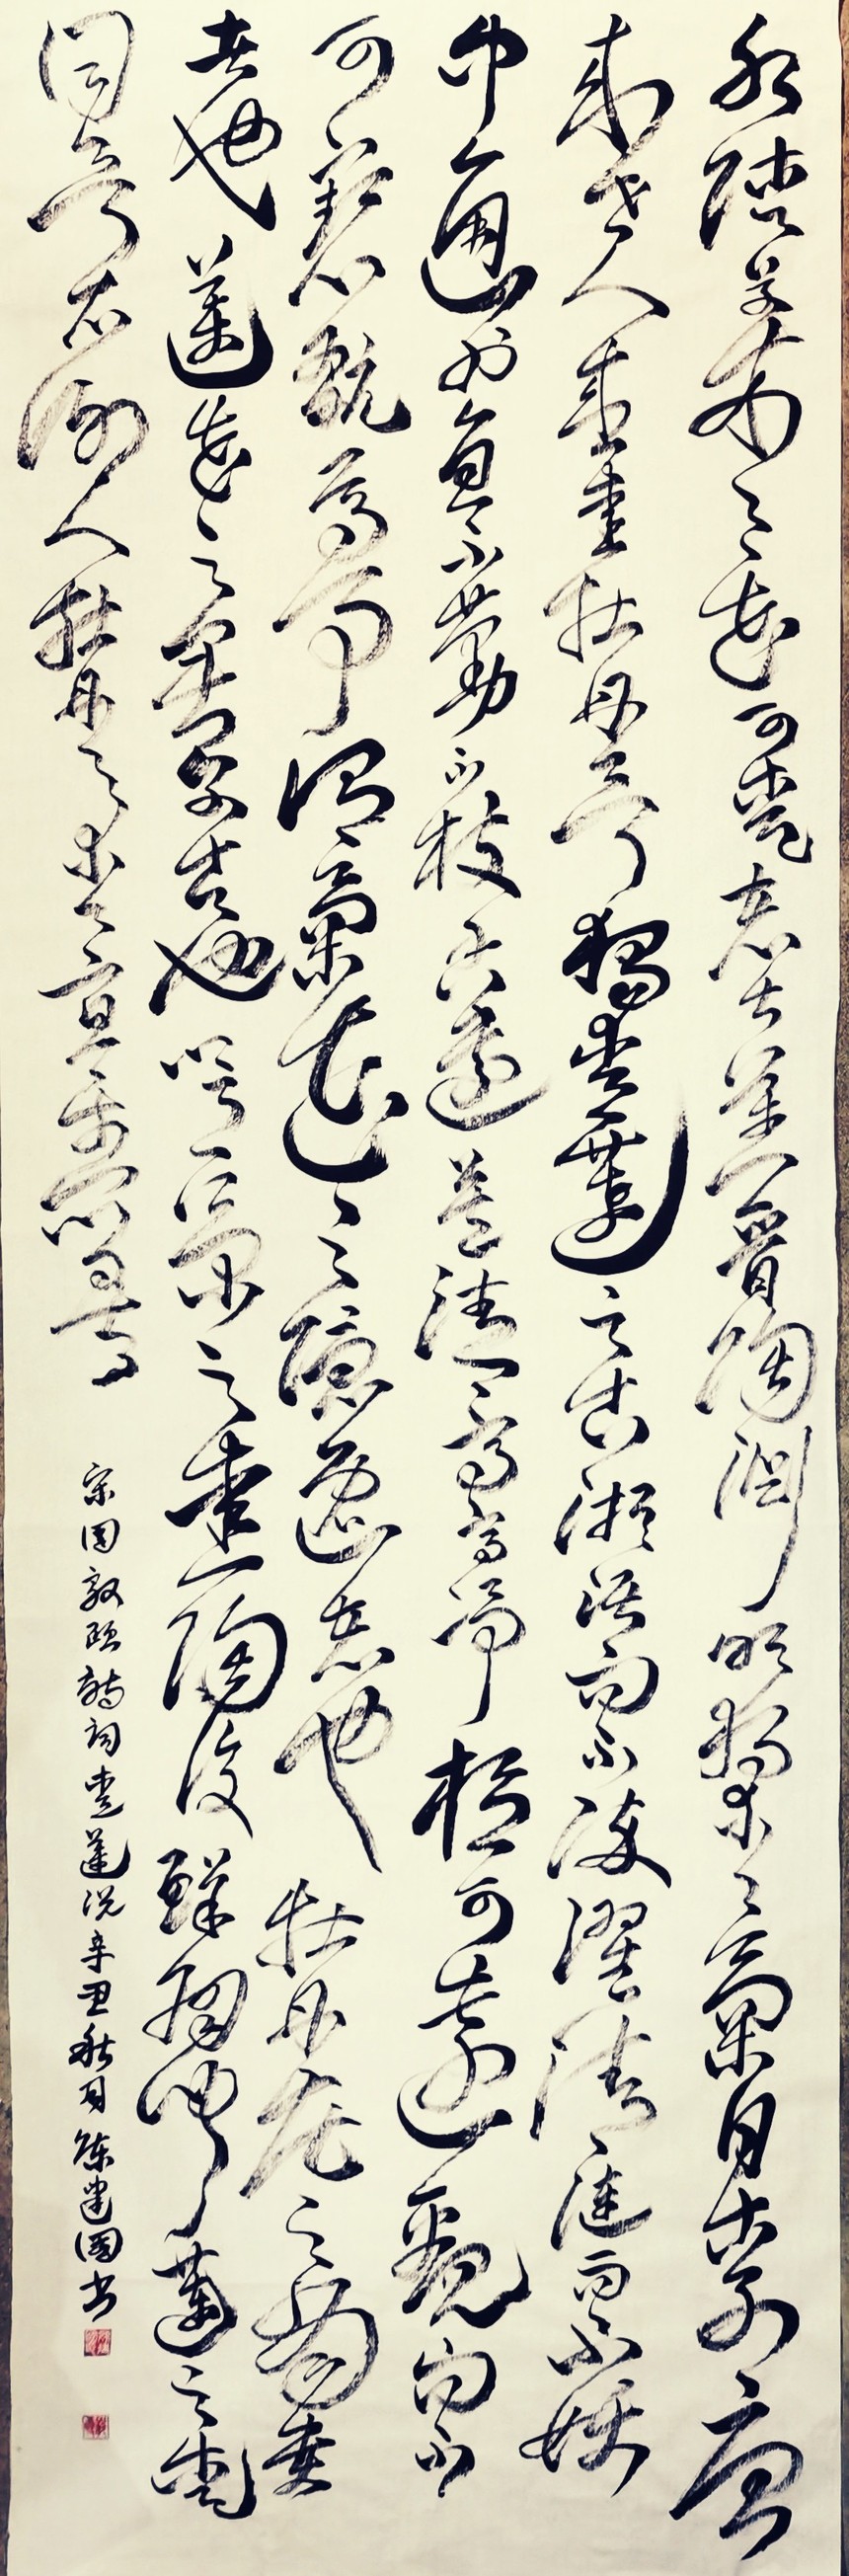 水陸草木之花可愛者甚蕃晉陶淵明獨愛之菊自李唐
來世人盛愛牡丹予獨愛蓮之出淤泥而不染濯清漣而不妖
中通外直不蔓不枝香遠益清亭亭淨植可遠觀而不
可褻玩焉予謂菊花之隱逸者也牡丹花之富貴
者也蓮花之君子者也噫菊之愛陶後鮮有聞蓮之愛
同予者何人牡丹之愛宜乎眾矣
宋周敦頤詩詞愛蓮說辛丑秋月建國书